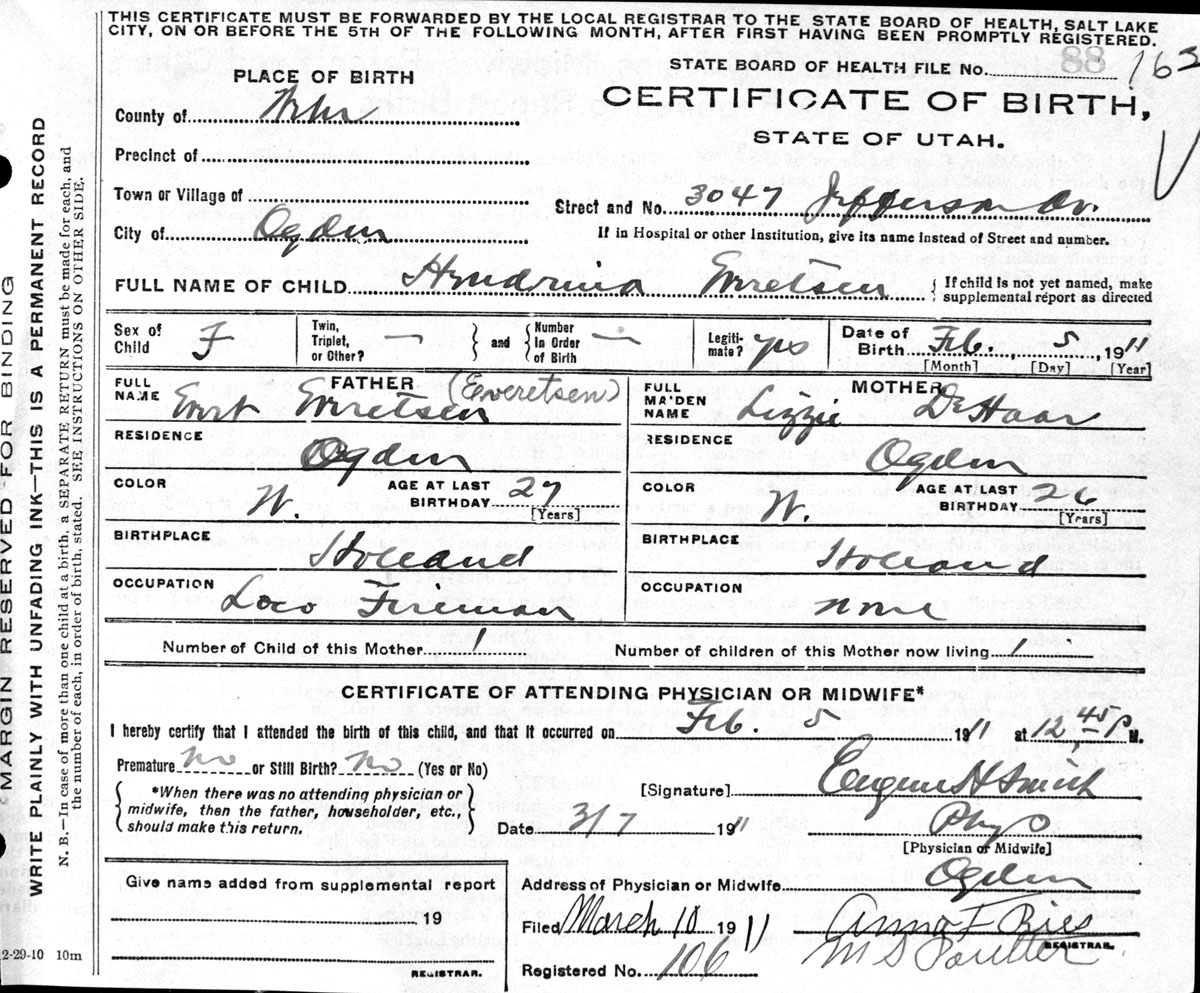 THIS CERTIFICATE MUST BE FORWARDED BY THE LOCAL REGISTRAR TO THE STATE BOARD OF HEALTH, SALT LAKE
CITY, ON OR BEFORE THE 5TH OF THE FOLLOWING MONTH, AFTER FIRST HAVING BEEN PROMPTLY REGISTERED.
STATE BOARD OF HEALTH FILE No. 88 163
PLACE OF BIRTH
CERTIFICATE OF BIRTH,
STATE OF UTAH.
County of
Precinct of
Town or Village of
Street and No. 3047 Jefferson Av.
City of Ogden
If in Hospital or other Institution, give its name instead of Street and number.
FULL NAME OF CHILD Hendrina Everetsen { If child is not yet named, make
supplemental report as directed
Sex of Child F
Twin, Triplet, or Other? — } and { Number In Order of Birth —
Legiti-mate? yes
Date of Birth Feb. 5, 1911
[Month] [Day] [Year]
FATHER
FULL NAME Evert Everetsen (Everetsen)
MOTHER
FULL MAIDEN NAME Lizzie DeHaar
RESIDENCE Ogden
RESIDENCE Ogden
COLOR W. AGE AT LAST BIRTHDAY 27 [Years]
COLOR W. AGE AT LAST BIRTHDAY 26 [Years]
BIRTHPLACE Holland
BIRTHPLACE Holland
OCCUPATION Loco Fireman
OCCUPATION none
Number of Child of this Mother 1
Number of children of this Mother now living 1
CERTIFICATE OF ATTENDING PHYSICIAN OR MIDWIFE*
I hereby certify that I attended the birth of this child, and that it occurred on Feb. 5 1911 at 12 45 P M.
Premature no or Still Birth? No (Yes or No)
{ *When there was no attending physician or
midwife, then the father, householder, etc.,
should make this return. }
[Signature] Eugene H Smith
Date 3/7 1911
Phys
[Physician or Midwife]
Give name added from supplemental report
19
REGISTRAR.
Address of Physician or Midwife Ogden
Filed March 10 1911 Anna F Ries
REGISTRAR.
Registered No. 106
MARGIN RESERVED FOR BINDING
WRITE PLAINLY WITH UNFADING INK—THIS IS A PERMANENT RECORD
N. B.—In case of more than one child at a birth, a SEPARATE RETURN must be made for each, and
the number of each, in order of birth, stated. SEE INSTRUCTIONS ON OTHER SIDE.
2-29-10 10m